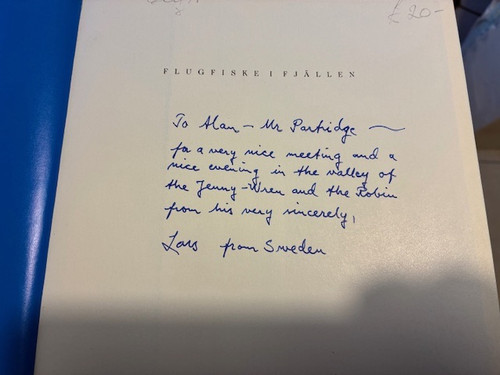 £20-
FLUGFISKE I FJÄLLEN
To Alan – Mr Partridge
for a very nice meeting and a
nice evening in the valley of
the Jenny-Wren and the Robin
from his very sincerely,
Lars from Sweden